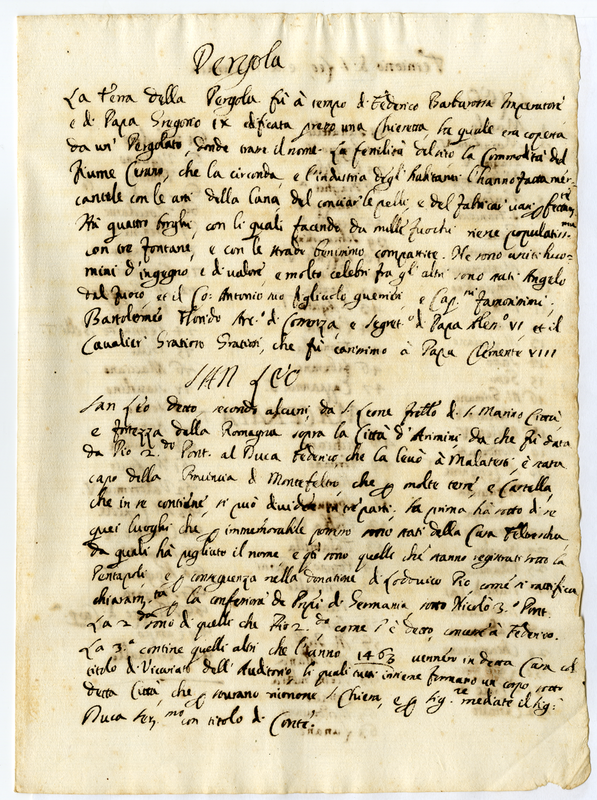 Pergola
La Terra della Pergola fù à tempo di Federico Barbarossa Imperatore
e di Papa Gregorio IX edificata presso una Chiesetta, la quale era coperta
da un' Pergolato, donde trasse il nome. La fertilità del sito la Commodità del
Fiume Cesano, che la circonda, e l'industria degl'habitanti l'hanno fatta mer-
cantile con le arti della Lana del conciar le pelli, e del fabricar
Hà quattro borghi, con li quali facendo da mille fuochi viene populatiss.ma
con tre fontane, e con le strade benissimo compartite. Ne sono usciti huo-
mini d'ingegno e di valore, e molto celebri fra gl'altri sono stati Angelo
dal fuoco, et il Co: Antonio suo figliuolo guerrieri e Cap.ni famosissimi,
Bartolomeo Florido Arc.o di Cosenza e Segret.o di Papa Aless.o VI, et il
Cavalier Gratioso Gratiosi, che fù carissimo à Papa Clemente VIII
SAN LEO
San Leo detto, secondo alcuni, da S. Leone frate di S. Marino Città
e fortezza della Romagna sopra la Città d'Arimini da che fù data
da Pio 2.do Pont. al Duca Federico, che la levò à Malatesti, è stata
capo della Provincia di Montefeltro, che p molte terre, e Castella,
che in se contiene si può dividere in tre parti. La prima hà sotto di se
quei luoghi che p immemorabile possesso sono stati della Casa Feltresca
da quali hà pigliato il nome e qti sono quelle che stanno registrati sotto la
Pentapoli, e p conseguenza nella donatione di Lodovico Pio, come si ratifica
chiaram.te p la confessione de Prpi di Germania sotto Nicolò 3.o Pont.
La 2.da sono di quelli che Pio 2.do come s'è detto, concesse à Federico.
La 3.a contiene quelli altri che l'anno 1463 vennero in detta Casa col
titolo di Vicariato dell'Auditorio, li quali tutti insieme formano un corpo sotto
detta Città, che p sourano riconosce S. Chiesa, e p sig.re mediate il sig.
Duca ser.mo con titolo di Conte.